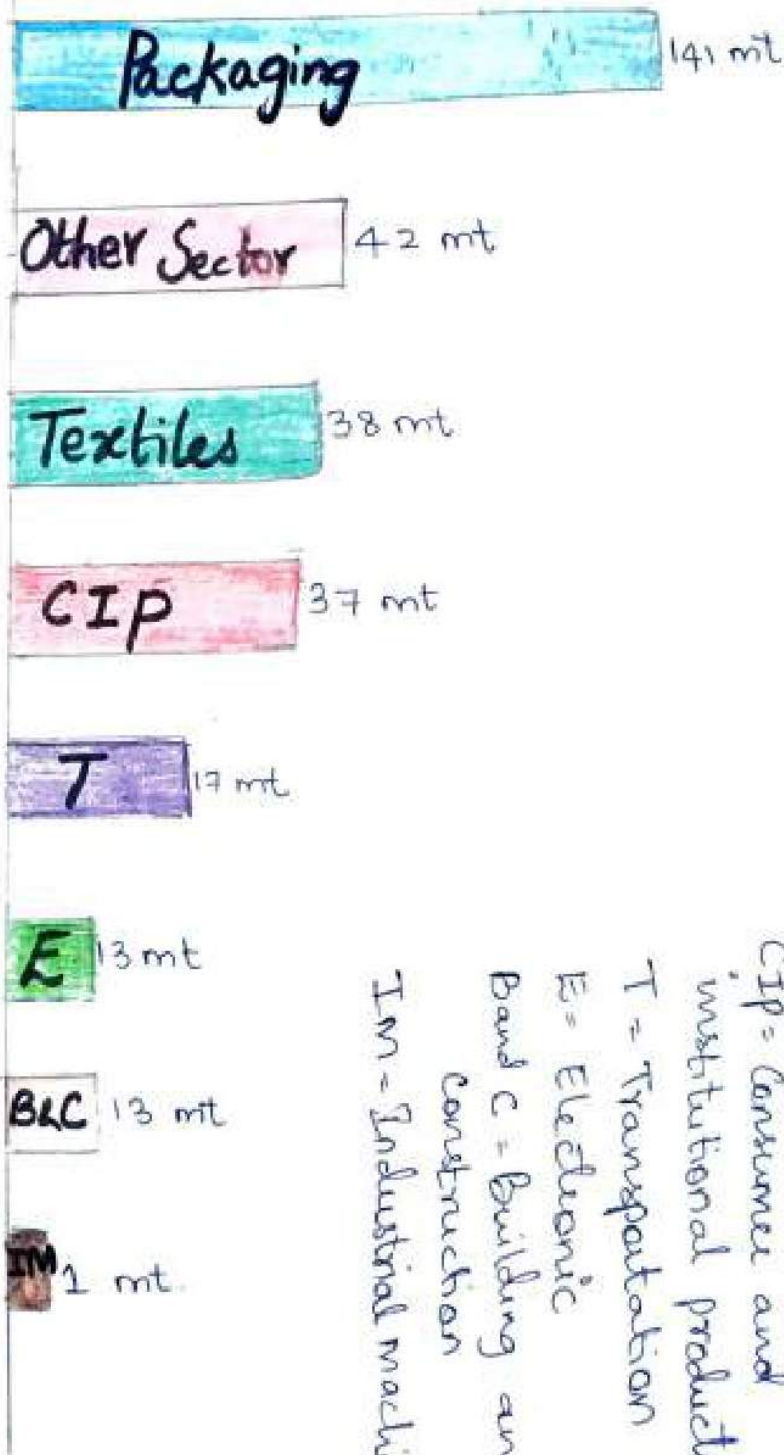 Packaging 141 mt
Other Sector 42 mt
Textiles 38 mt
CIP 37 mt
T 17 mt
E 13 mt
B&C 13 mt
IM 1 mt.
CIP = Consumer and
institutional product
T = Transpotation
E = Electronic
Band C = Building an
Construction
IM - Industrial machi